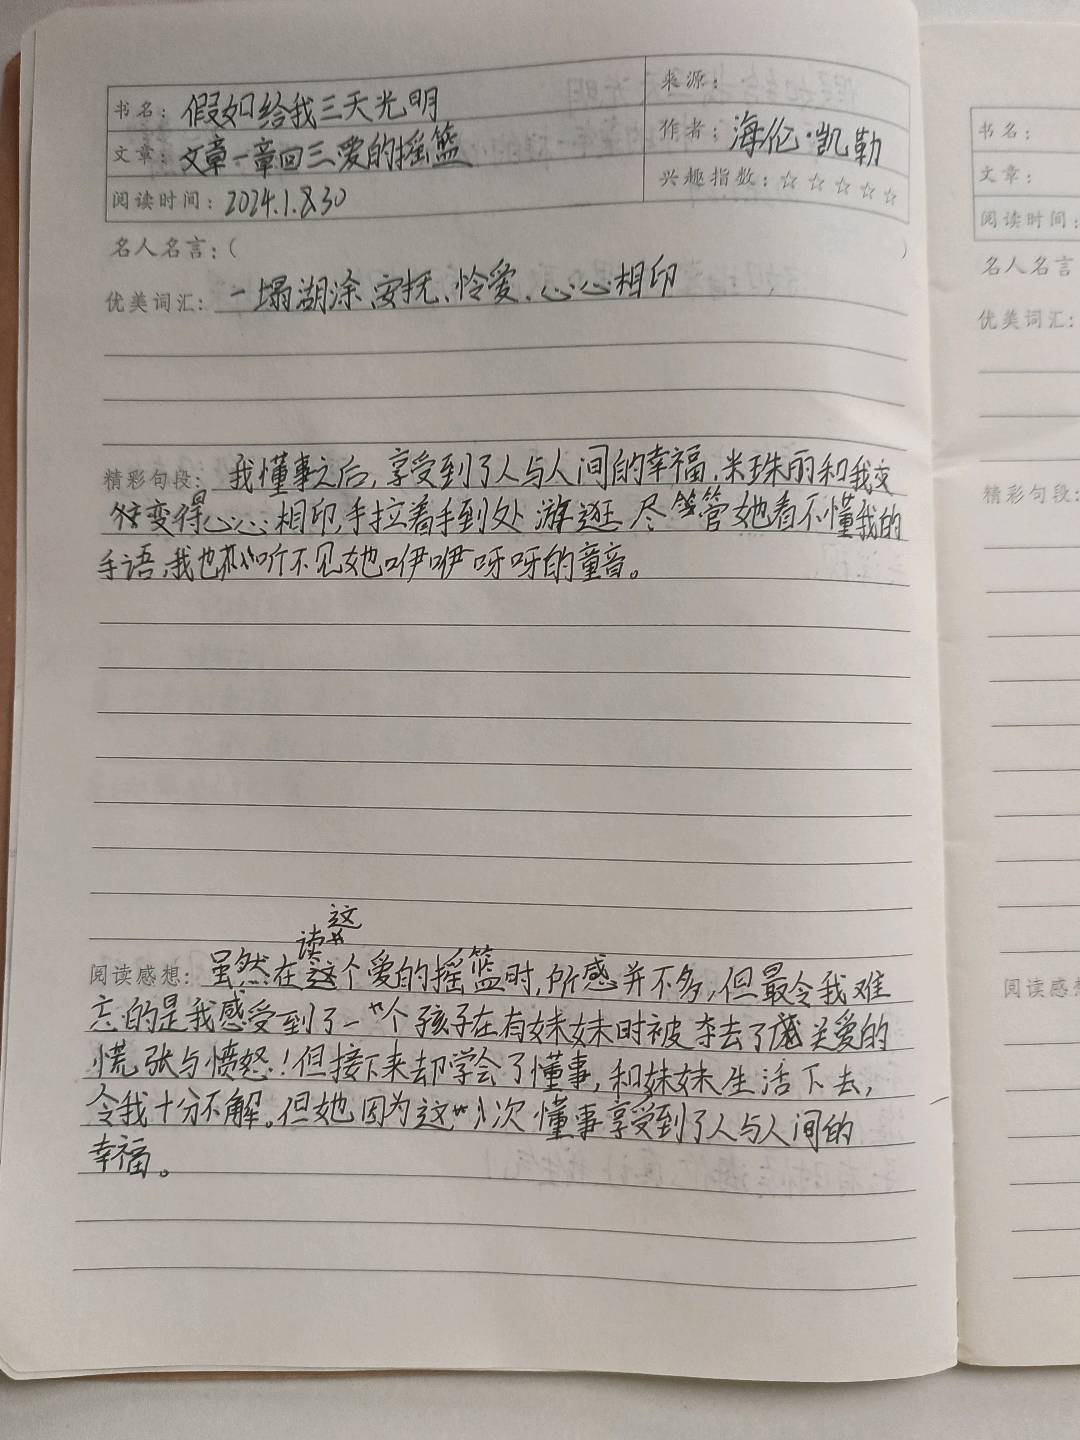 书名：假如给我三天光明
来源：
文章：文章一章回三、爱的摇篮
作者：海伦·凯勒
阅读时间：2024.1.8.30
兴趣指数：☆☆☆☆☆
名人名言：（ ）
优美词汇：一塌湖涂、安抚、怜爱、心心相印
精彩句段：我懂事之后，享受到了人与人间的幸福，米珠丽和我变
变得心心相印，手拉着手到处游逛，尽管她看不懂我的
手语，我也听不见她咿咿呀呀的童音。
阅读感想：虽然在读这个爱的摇篮时，所感并不多，但最令我难
忘的是我感受到了一个孩子在有妹妹时被夺去了关爱的
慌张与愤怒！但接下来却学会了懂事，和妹妹生活下去，
令我十分不解。但她因为这次懂事享受到了人与人间的
幸福。
书名：
文章：
阅读时间：
名人名言
优美词汇：
精彩句段：
阅读感想